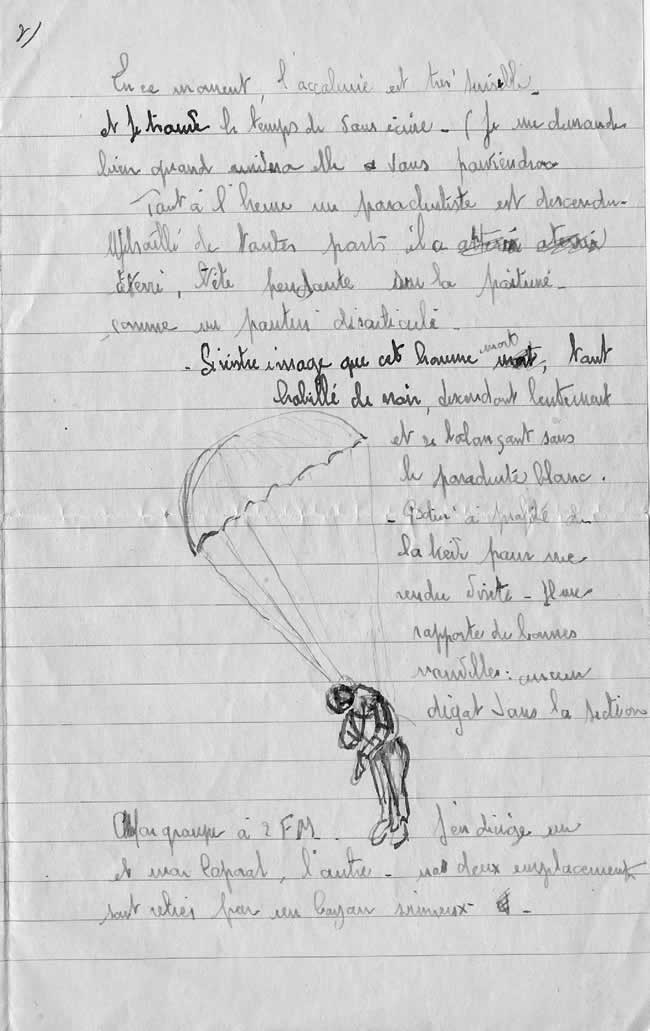 2/
En ce moment, l'accalmie est très sensible
et je trouve le temps de vous écrire - (Je me demande
bien quand vous parviendra
Tout à l'heure un parachutiste est descendu.
Mitraillé de toutes parts il a
atterri, tête pendante sur la poitrine
comme un pantin désarticulé -
- Sinistre image que cet homme mort, tout
habillé de noir, descendant lentement
et se balançant sous
le parachute blanc.
- à profité de
la nuit pour me
rendre visite - Il me
rapporte de bonnes
nouvelles : aucun
dégat dans la section
Mon groupe à 2 FM. J'en dirige un
et mon Caporal, l'autre - nos deux emplacements
sont reliés par un boyau sinueux -